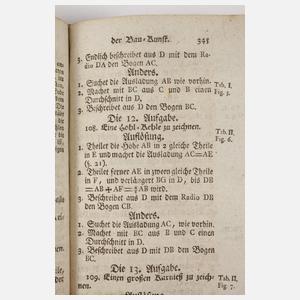 der Bau-Kunst. 345
3. Endlich beschreibet aus D mit dem Ra-
dio DA den Bogen AC.
Anders.
1. Suchet die Ausladung AB wie vorhin.
2. Machet mit BC aus C und B einen
Durchschnitt in D.
Tab. I.
Fig. 5.
3. Beschreibet aus D den Bogen BC.
Die 12. Aufgabe.
108. Eine Hohl-Kehle zu zeichnen.
Tab. II.
Fig. 6.
Auflösung.
1. Theilet die Höhe AB in 2 gleiche Theile
in E und machet die Ausladung AC=AE
(§. 21).
2. Theilet ferner AE in zween gleiche Theile
in F, und verlängert BG in D, bis DB
=AB+AF= AB wird.
3. Beschreibet aus D mit dem Radio DB
den Bogen CB.
Anders.
1. Suchet die Ausladung AC, wie vorhin.
2. Machet mit BC aus B und C einen
Durchschnitt in D.
3. Beschreibet aus D mit DB den Bogen
BC.
Die 13. Aufgabe.
109. Einen großen Karnieß zu zeich-
nen.
Tab. II.
Fig. 7.